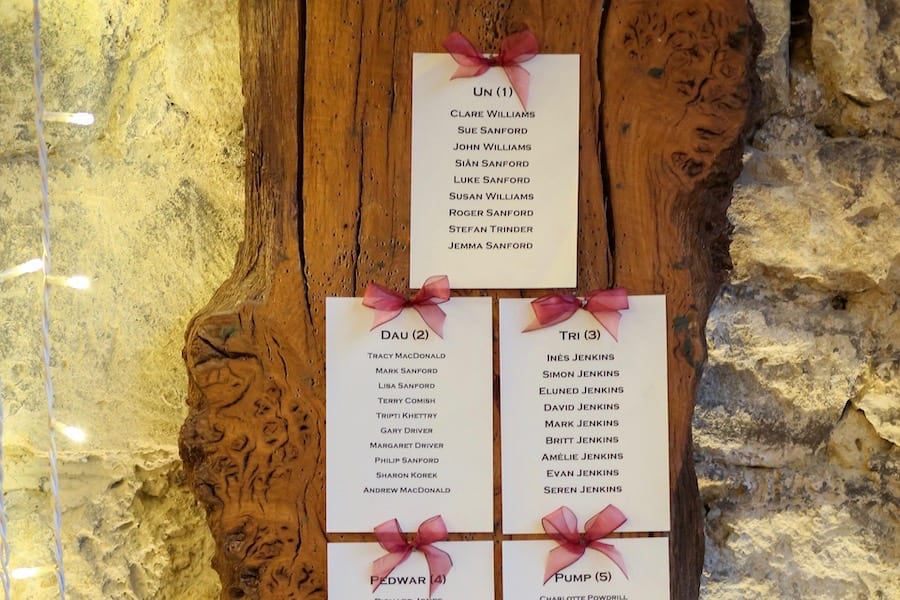 Un (1)
Clare Williams
Sue Sanford
John Williams
Siân Sanford
Luke Sanford
Susan Williams
Roger Sanford
Stefan Trinder
Jemma Sanford
Dau (2)
Tracy MacDonald
Mark Sanford
Lisa Sanford
Terry Comish
Tripti Khettry
Gary Driver
Margaret Driver
Philip Sanford
Sharon Korek
Andrew MacDonald
Tri (3)
Inês Jenkins
Simon Jenkins
Eluned Jenkins
David Jenkins
Mark Jenkins
Britt Jenkins
Amélie Jenkins
Evan Jenkins
Seren Jenkins
Pedwar (4)
Pump (5)
Charlotte Powdrill